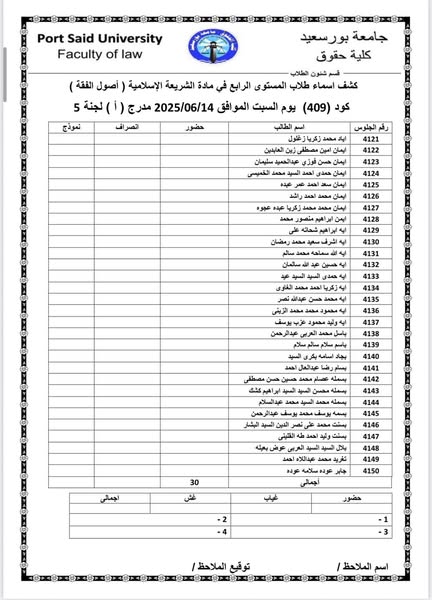 Port Said University
Faculty of law
جامعة بورسعيد
كلية حقوق
قسم شئون الطلاب
كشف اسماء طلاب المستوى الرابع في مادة الشريعة الإسلامية ( أصول الفقة )
كود (409) يوم السبت الموافق 2025/06/14 مدرج ( أ ) لجنة 5
رقم الجلوس اسم الطالب حضور انصراف نموذج
4121 اياد محمد زكريا زغلول
4122 ايمان امين مصطفى زين العابدين
4123 ايمان حسن فوزي عبدالحميد سليمان
4124 ايمان حمدى احمد السيد محمد الخميسى
4125 ايمان سعد احمد عمر عبده
4126 ايمان محمد احمد راشد
4127 ايمان محمد محمد زكريا عبده عجوه
4128 ايمن ابراهيم منصور محمد
4129 ايه ابراهيم شحاته على
4130 ايه اشرف سعيد محمد رمضان
4131 ايه الله سماحه محمد سالم
4132 ايه حسين عبد الله سالمان
4133 ايه حمدى السيد السيد عيد
4134 ايه زكريا احمد محمد الغاوى
4135 ايه محمد حسن عبدالله نصر
4136 ايه محمود محمد محمد الزينى
4137 ايه وليد محمود عزب يوسف
4138 باسل محمد العربى عبدالرحمن
4139 باسم سلام سالم سلام
4140 بجاد اسامه بكرى السيد
4141 بسام رضا عبدالعال احمد
4142 بسمله عصام محمد حسين حسن مصطفى
4143 بسمله محسن السيد السيد ابراهيم كشك
4144 بسمله محمد السيد محمد عبدالسلام
4145 بسمه يوسف محمد يوسف عبدالرحمن
4146 بسنت محمد على نصر الدين السيد البشار
4147 بسنت وليد احمد طه القلينى
4148 بلال السيد السيد العربى عوض بعيله
4149 تغريد محمد عبداللاه احمد
4150 جابر عوده سلامه عوده
أجمالى 30
حضور غياب غش اجمالى
1 - 2 -
3 - 4 -
اسم الملاحظ / توقيع الملاحظ /